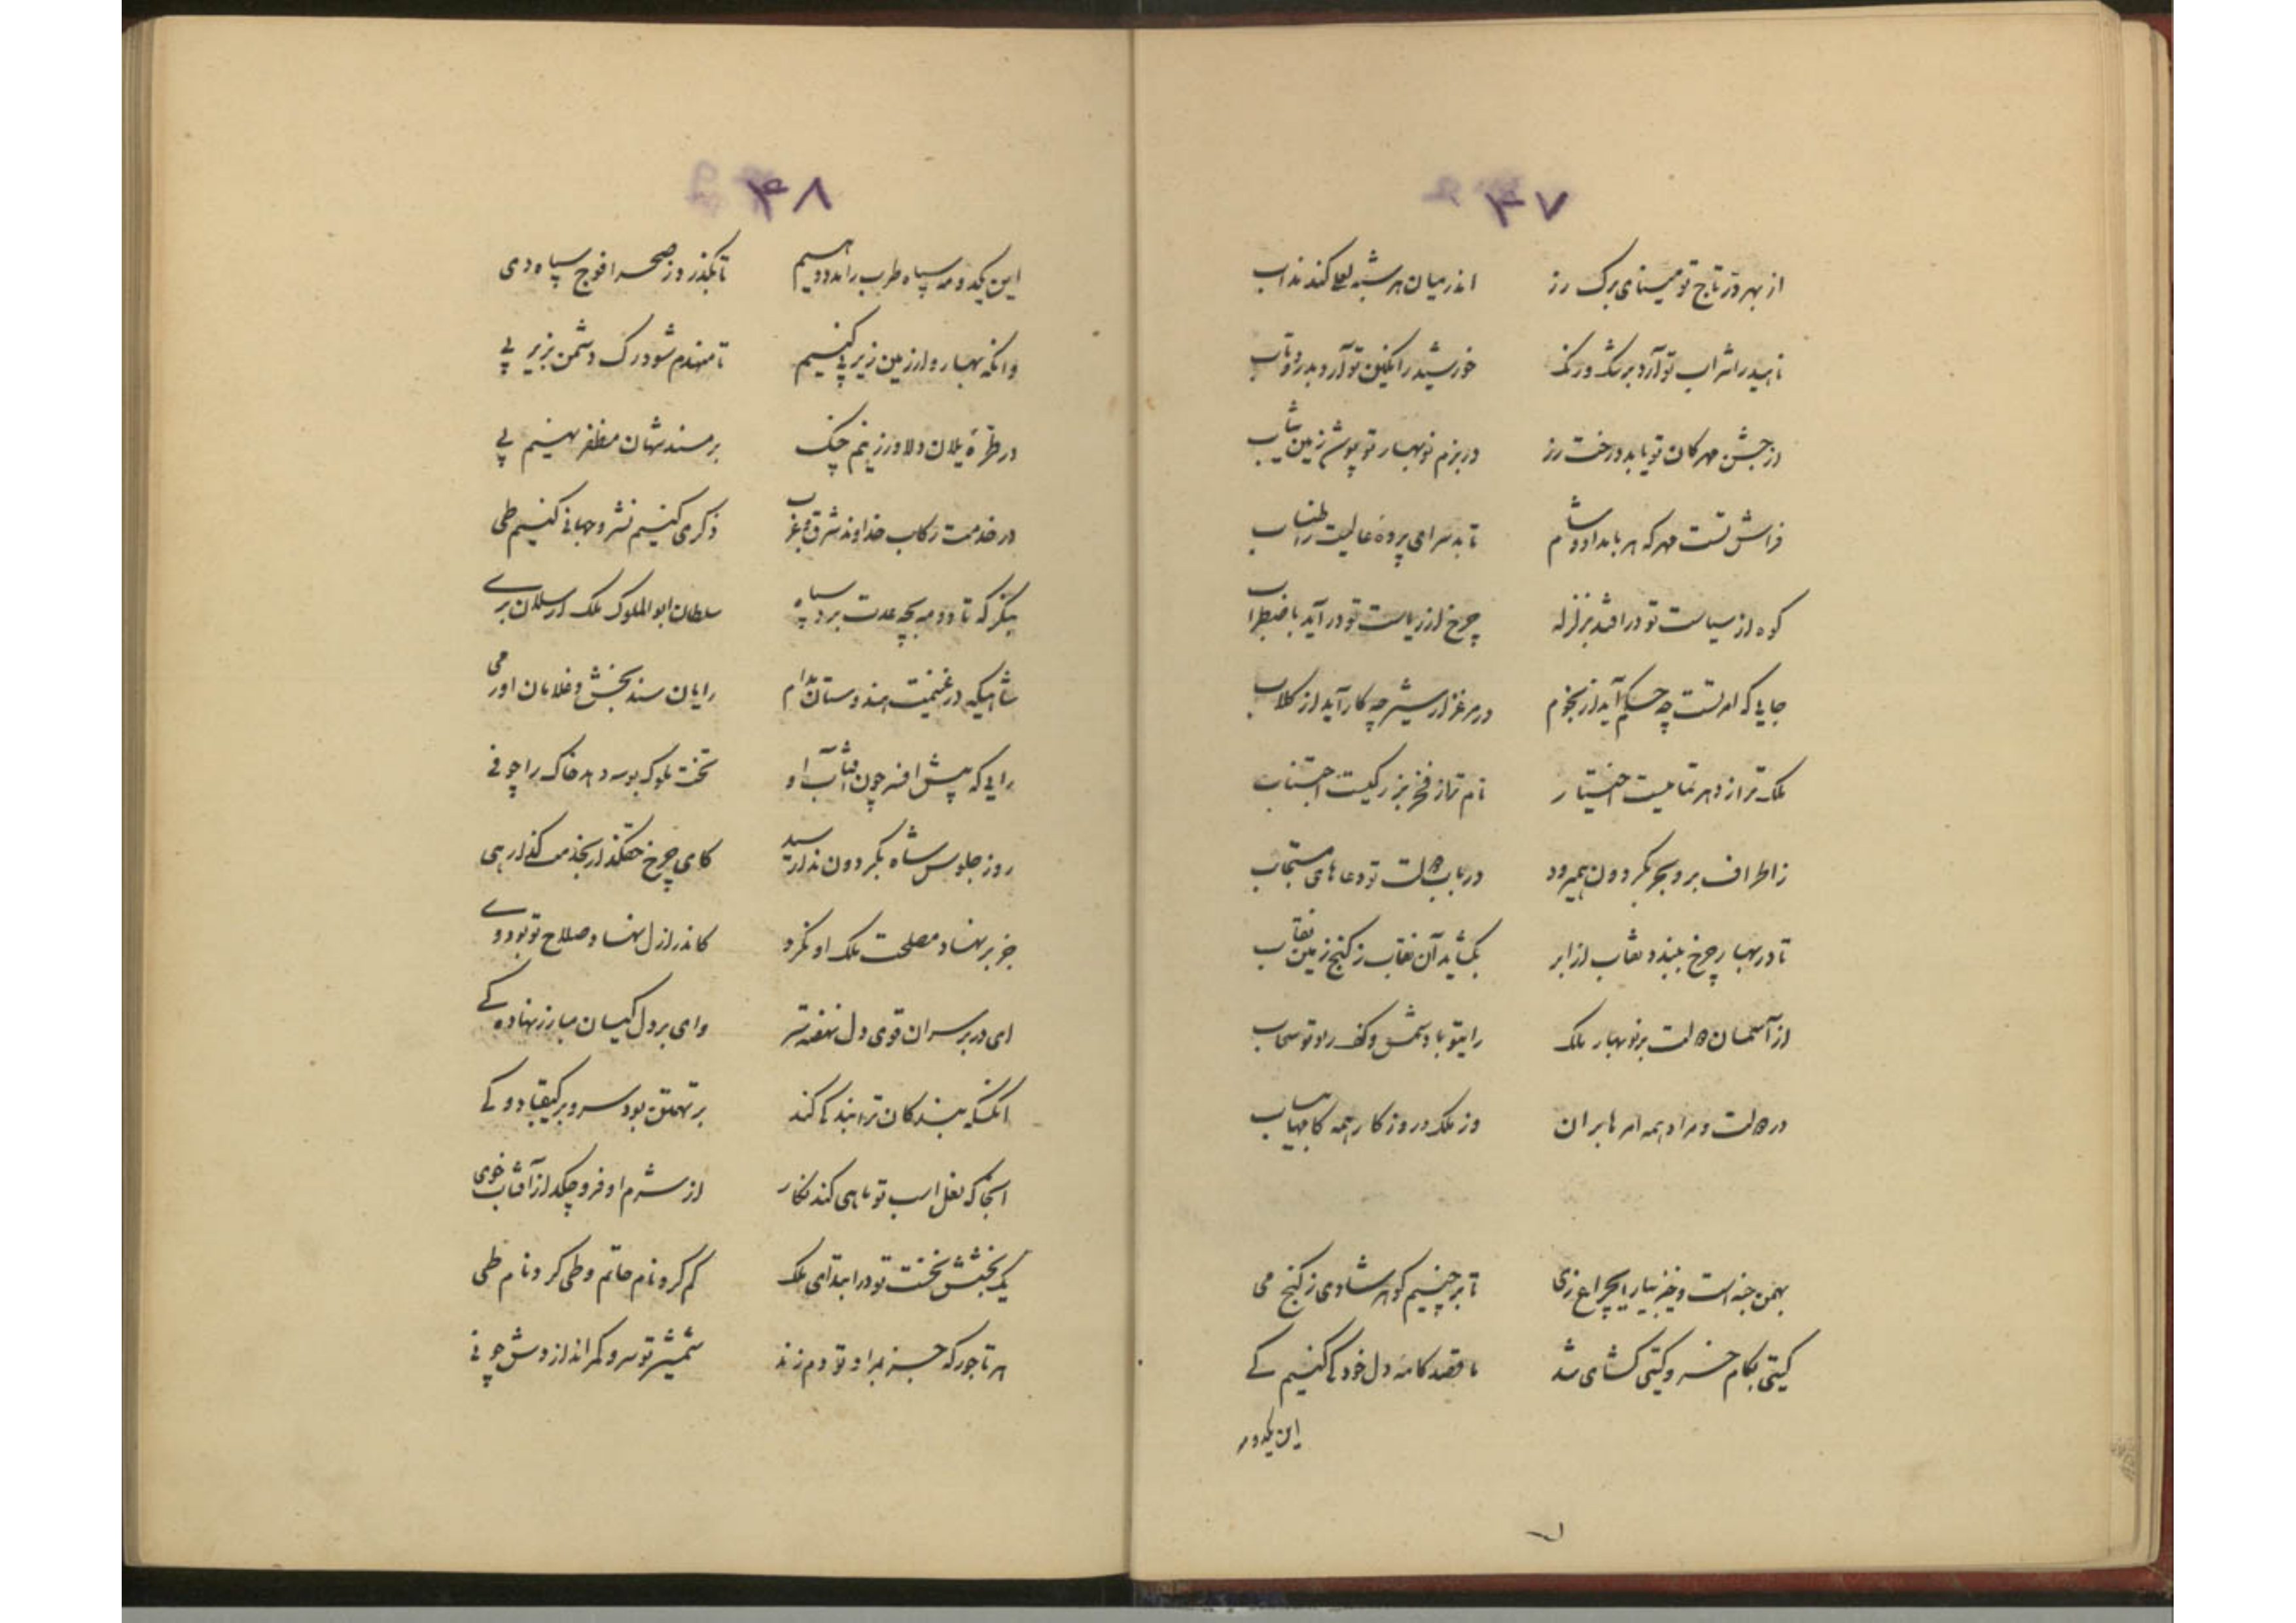 ۴۷
از بهر در تاج تو مینای برک رز اندر میان هر شبه لعلی کند نداب
ناهید را شراب تو آرد برشک ورنک خورشید را نکین تو آرد بدر و تاب
از جشن مهرکان تو یابد درخت رز در بزم نوبهار تو پوشد زمین ثیاب
فراش تست مهر که هر بامداد و شام تا بد سرای پرده عالیت را طناب
کوه از سیاست تو در افتد بزلزله چرخ از ریاست تو در آید باضطراب
جایی که امر تست چه حکم آید از نجوم در مرغزار شیر چه کار آید از کلاب
ملک ترا ز دهر تمامیست اختیار نام ترا ز فخر بزرکیست اجتناب
ز اطراف بر و بحر بکردون همیرود در باب دولت تو دعاهای مستجاب
تا در بهار چرخ ببندد نقاب از ابر بکشاید آن نقاب ز کنج زمین نقاب
از آسمان دولت بر نوبهار ملک رای تو باد شمس و کف راد تو سحاب
در دولت و مراد همه امرها بران وز ملک در روزکار همه کامها بیاب
بهمن خجسته است و خیز بیار ای چراغ ری تا بر چنیم کوهر شادی ز کنج می
کیتی بکام خسرو کیتی کشای شد ما قصد کامه دل خود کی کنیم کی
این یکدو مه
۴۸
این یکدو مه سپاه طرب را مدد دهیم تا بکذرد ز صحرا فوج سپاه دی
وانکه نهیم رو از زمین زیر پی کنیم تا منهدم شود رک دشمن بزیر پی
در طره یلان دلاور زنیم چنک بر مسند شهان مظفر نهیم پی
در خدمت رکاب خداوند شرق و غرب ذکری کنیم نشر و جهانی کنیم طی
بنکر که تا دو مه بچه عدت برد سپاه سلطان ابوالملوک ملک ارسلان بری
شاهیکه در غنیمت هندوستان مدام رایان سند بخش و غلامان اورمی
رایی که پیش افسر چون آفتاب او تخت ملوک بوسه دهد خاک را چو نی
روز جلوس شاه بکردون ندا رسید کای چرخ حقکذار بخدمت کذار هی
جز بر نهاد مصلحت ملک او نکرد کاندر ازل نهاد و صلاح تو بود وی
ای در بر سران قوی دل نهفته سر وای بر دل کیان مبارز نهاده کی
آنکس که بندکان ترا بندکی کند بر تهمتن بود سر و بر کیقباد و کی
آنجا که نعل اسب تو ماهی کند نکار از شرم او فرو چکد از آفتاب خوی
یک بخشش نخست تو در ابتدای ملک کم کرد نام حاتم و طی کرد نام طی
هر تاجور که جز بمراد تو دم زند شمشیر تو سر و کمر اندازدش چو نی